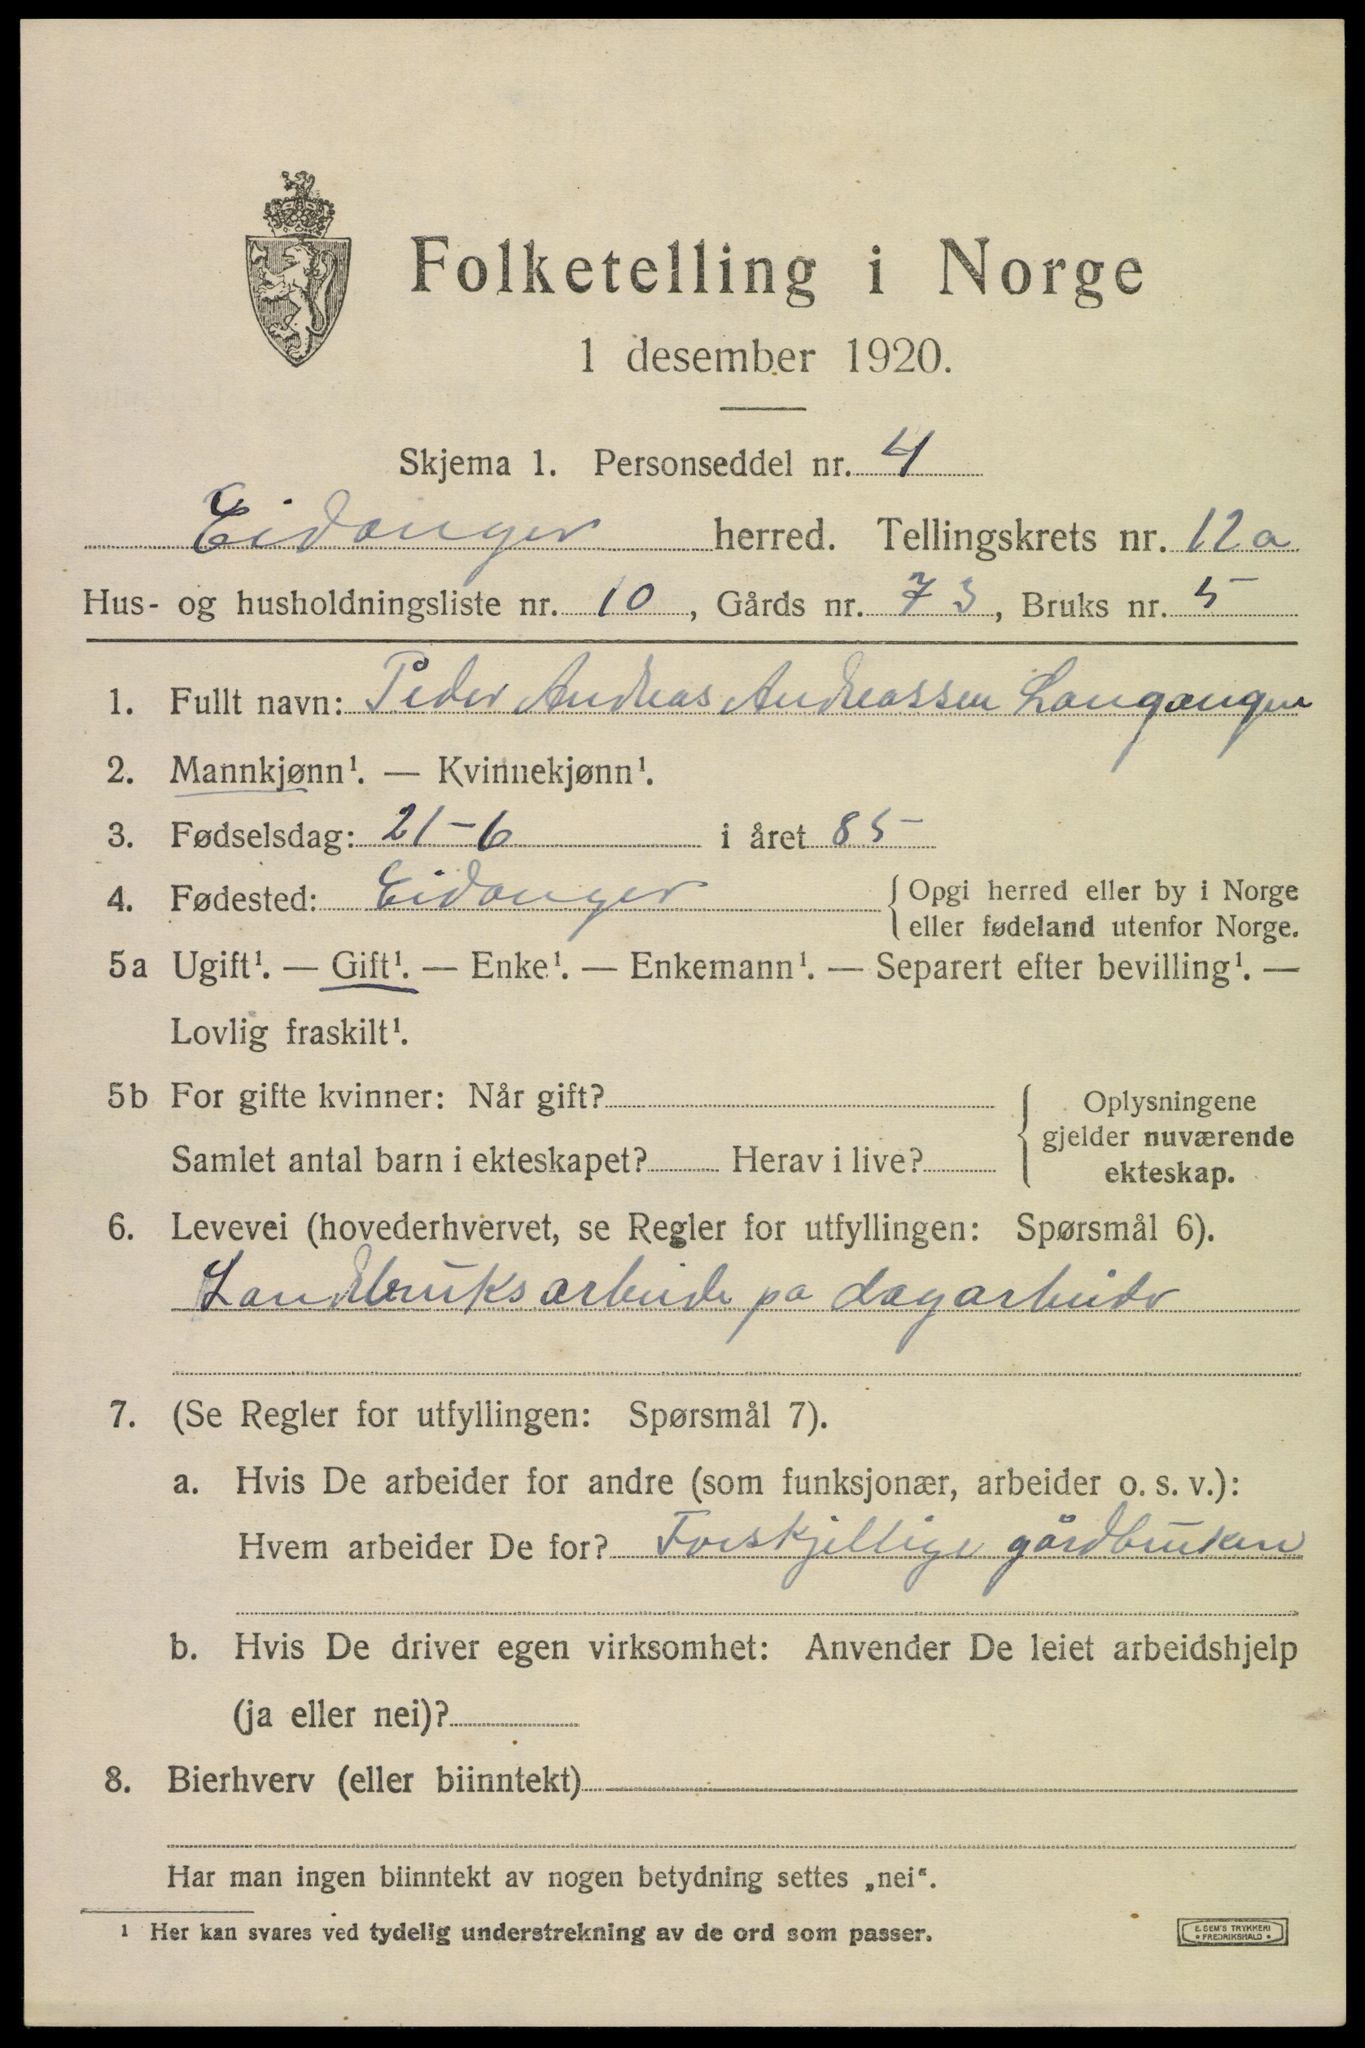 Folketelling i Norge
1 desember 1920.
Skjema 1. Personseddel nr. 4
Eidanger herred. Tellingskrets nr. 12a
Hus- og husholdningsliste nr. 10, Gårds nr. 73, Bruks nr. 5
1. Fullt navn: Peder Andreas Andreassen Langangen
2. Mannkjønn¹. — Kvinnekjønn¹.
3. Fødselsdag: 21-6 i året 85
4. Fødested: Eidanger { Opgi herred eller by i Norge
eller fødeland utenfor Norge.
5a Ugift¹. — Gift¹. — Enke¹. — Enkemann¹. — Separert efter bevilling¹. —
Lovlig fraskilt¹.
5b For gifte kvinner: Når gift?
Samlet antal barn i ekteskapet? Herav i live?
{ Oplysningene
gjelder nuværende
ekteskap.
6. Levevei (hovederhvervet, se Regler for utfyllingen: Spørsmål 6).
Landbruksarbeide pa dagarbeide
7. (Se Regler for utfyllingen: Spørsmål 7).
a. Hvis De arbeider for andre (som funksjonær, arbeider o. s. v.):
Hvem arbeider De for? Forskjellige gårdbrukere
b. Hvis De driver egen virksomhet: Anvender De leiet arbeidshjelp
(ja eller nei)?
8. Bierhverv (eller biinntekt)
Har man ingen biinntekt av nogen betydning settes „nei“.
¹ Her kan svares ved tydelig understrekning av de ord som passer.
E. SEM'S TRYKKERI
• FREDRIKSHALD •